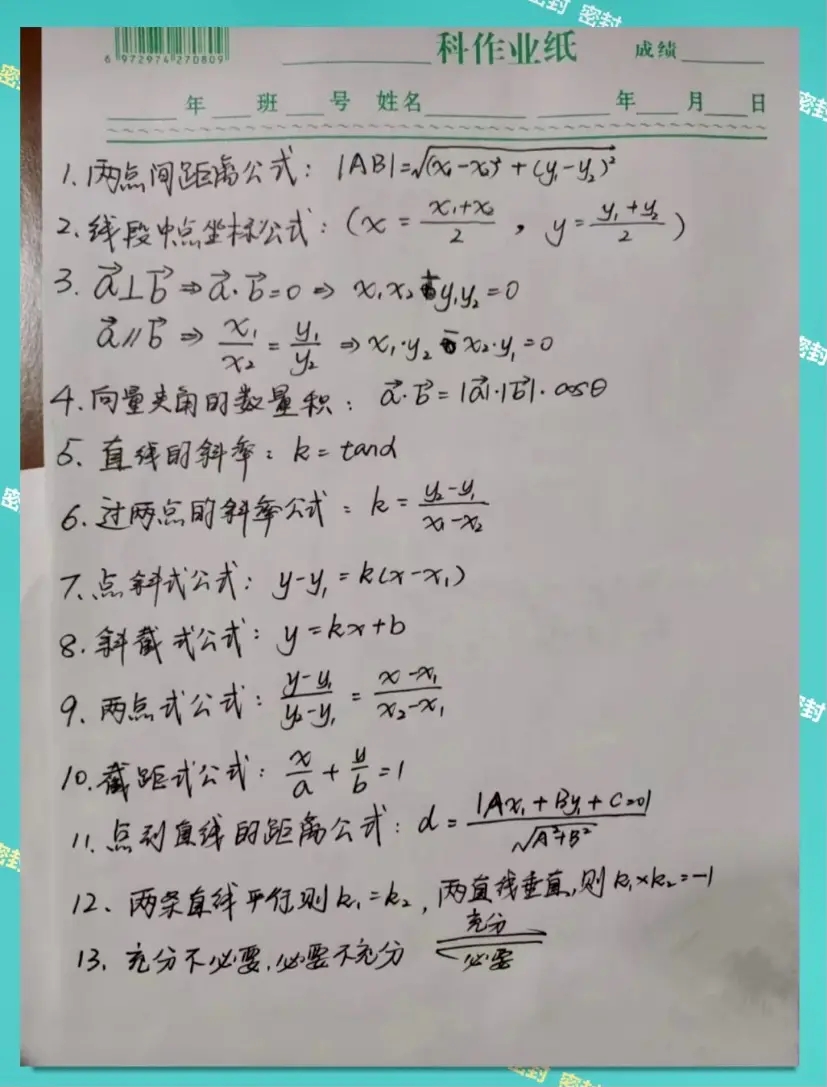 密封 密封
6 972974 270809
科作业纸 成绩
年 班 号 姓名 年 月 日
1. 两点间距离公式: |AB|=√(x₁-x₂)²+(y₁-y₂)²
2. 线段中点坐标公式: (x=\frac{x₁+x₂}{2}, y=\frac{y₁+y₂}{2})
3. \vec{a}⊥\vec{b}⇒\vec{a}·\vec{b}=0⇒ x₁x₂+y₁y₂=0
\vec{a}//\vec{b}⇒\frac{x₁}{x₂}=\frac{y₁}{y₂}⇒x₁·y₂-x₂·y₁=0
4. 向量夹角的数量积: \vec{a}·\vec{b}=|\vec{a}|·|\vec{b}|·cosθ
5. 直线的斜率: k=tanα
6. 过两点的斜率公式: k=\frac{y₂-y₁}{x₁-x₂}
7. 点斜式公式: y-y₁=k(x-x₁)
8. 斜截式公式: y=kx+b
9. 两点式公式: \frac{y-y₁}{y₂-y₁}=\frac{x-x₁}{x₂-x₁}
10. 截距式公式: \frac{x}{a}+\frac{y}{b}=1
11. 点到直线的距离公式: d=\frac{|Ax₁+By₁+C=0|}{√A²+B²}
12、两条直线平行则k₁=k₂, 两直线垂直,则k₁×k₂=-1
13、充分不必要,必要不充分 充分
必要